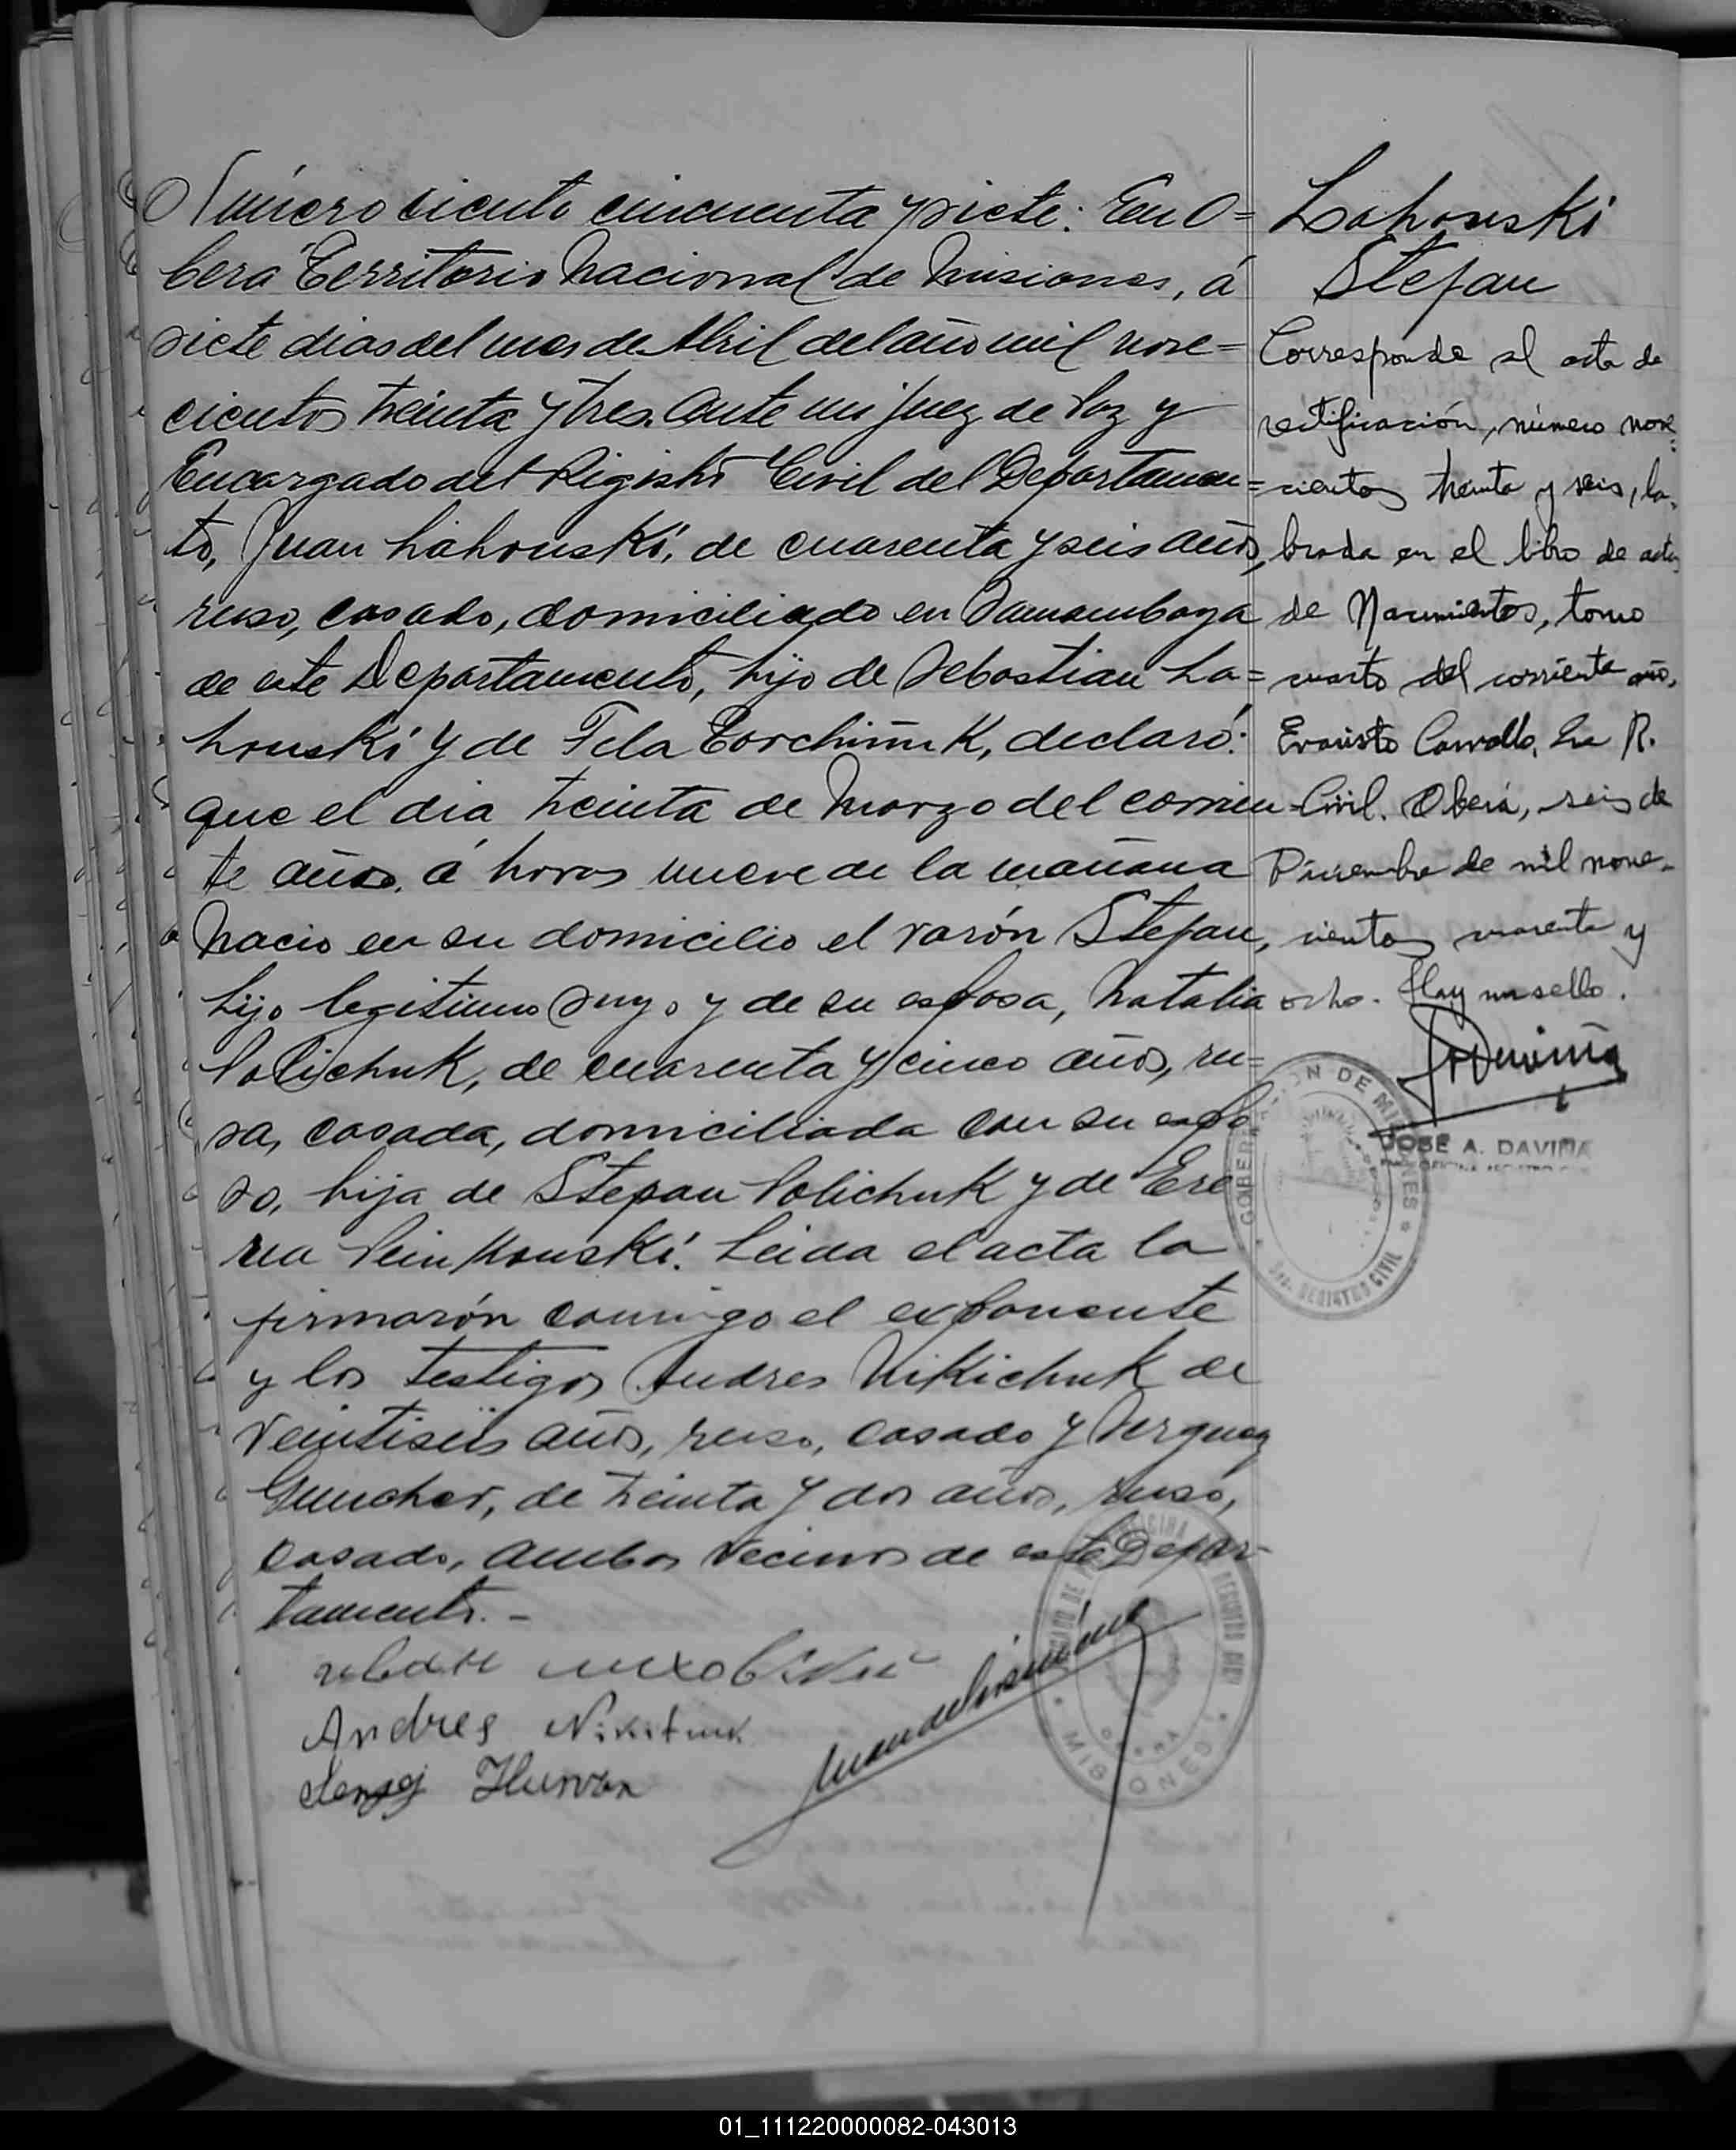 Número ciento cincuenta y siete: En O=
berá Territorio Nacional de Misiones, á
siete dias del mes de Abril del año mil nove=
cientos treinta y tres. Ante mi Juez de Paz y
Encargado del Registro Civil del Departamen=
to, Juan Lahouski, de cuarenta y seis años,
ruso, casado, domiciliado en Samambaya
de este Departamento, hijo de Sebastian La=
houski y de Tela, declaró:
que el dia treinta de Marzo del corrien
te año, á horas nueve de la mañana
nació en su domicilio el varón Stefan,
hijo legitimo suyo y de su esposa, Natalia
Polichuk, de cuarenta y cinco años, ru=
sa, casada, domiciliada con su espo
so, hija de Stepan Polichuk y de Ere
. Leida el acta la
firmarón conmigo el exponente
y los testigos Andres Nikichuk de
veintiseis años, ruso, casado y Serguez
, de treinta y dos años, ruso,
casado, ambos vecinos de este Depar-
tamento.-
Andres Nikituk
Lahouski
Stefan
Corresponde al acta de
rectificación, número nove=
cientos treinta y seis, la-
brada en el libro de actas
de Nacimientos, tomo
cuarto del corriente año,
Evaristo Carvallo, R.
Civil. Oberá, seis de
Diciembre de mil nove-
cientos cuarenta y
ocho. Hay un sello.
JOSE A. DAVIÑA
GOBERNACION DE MISIONES
REGISTRO CIVIL
MISIONES